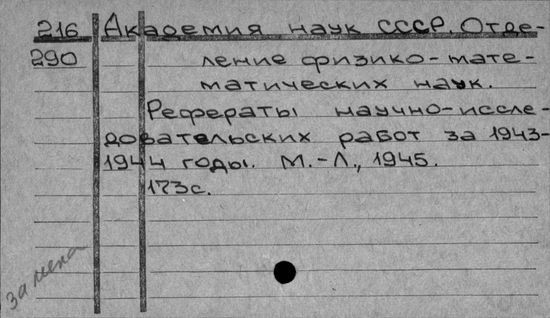 216 Академия наук СССР. Отде-
290 ление физико-мате-
матических наук.
Рефераты научно-иссле-
довательских работ за 1943-
1944 годы. М.-Л., 1945.
173с.
замена